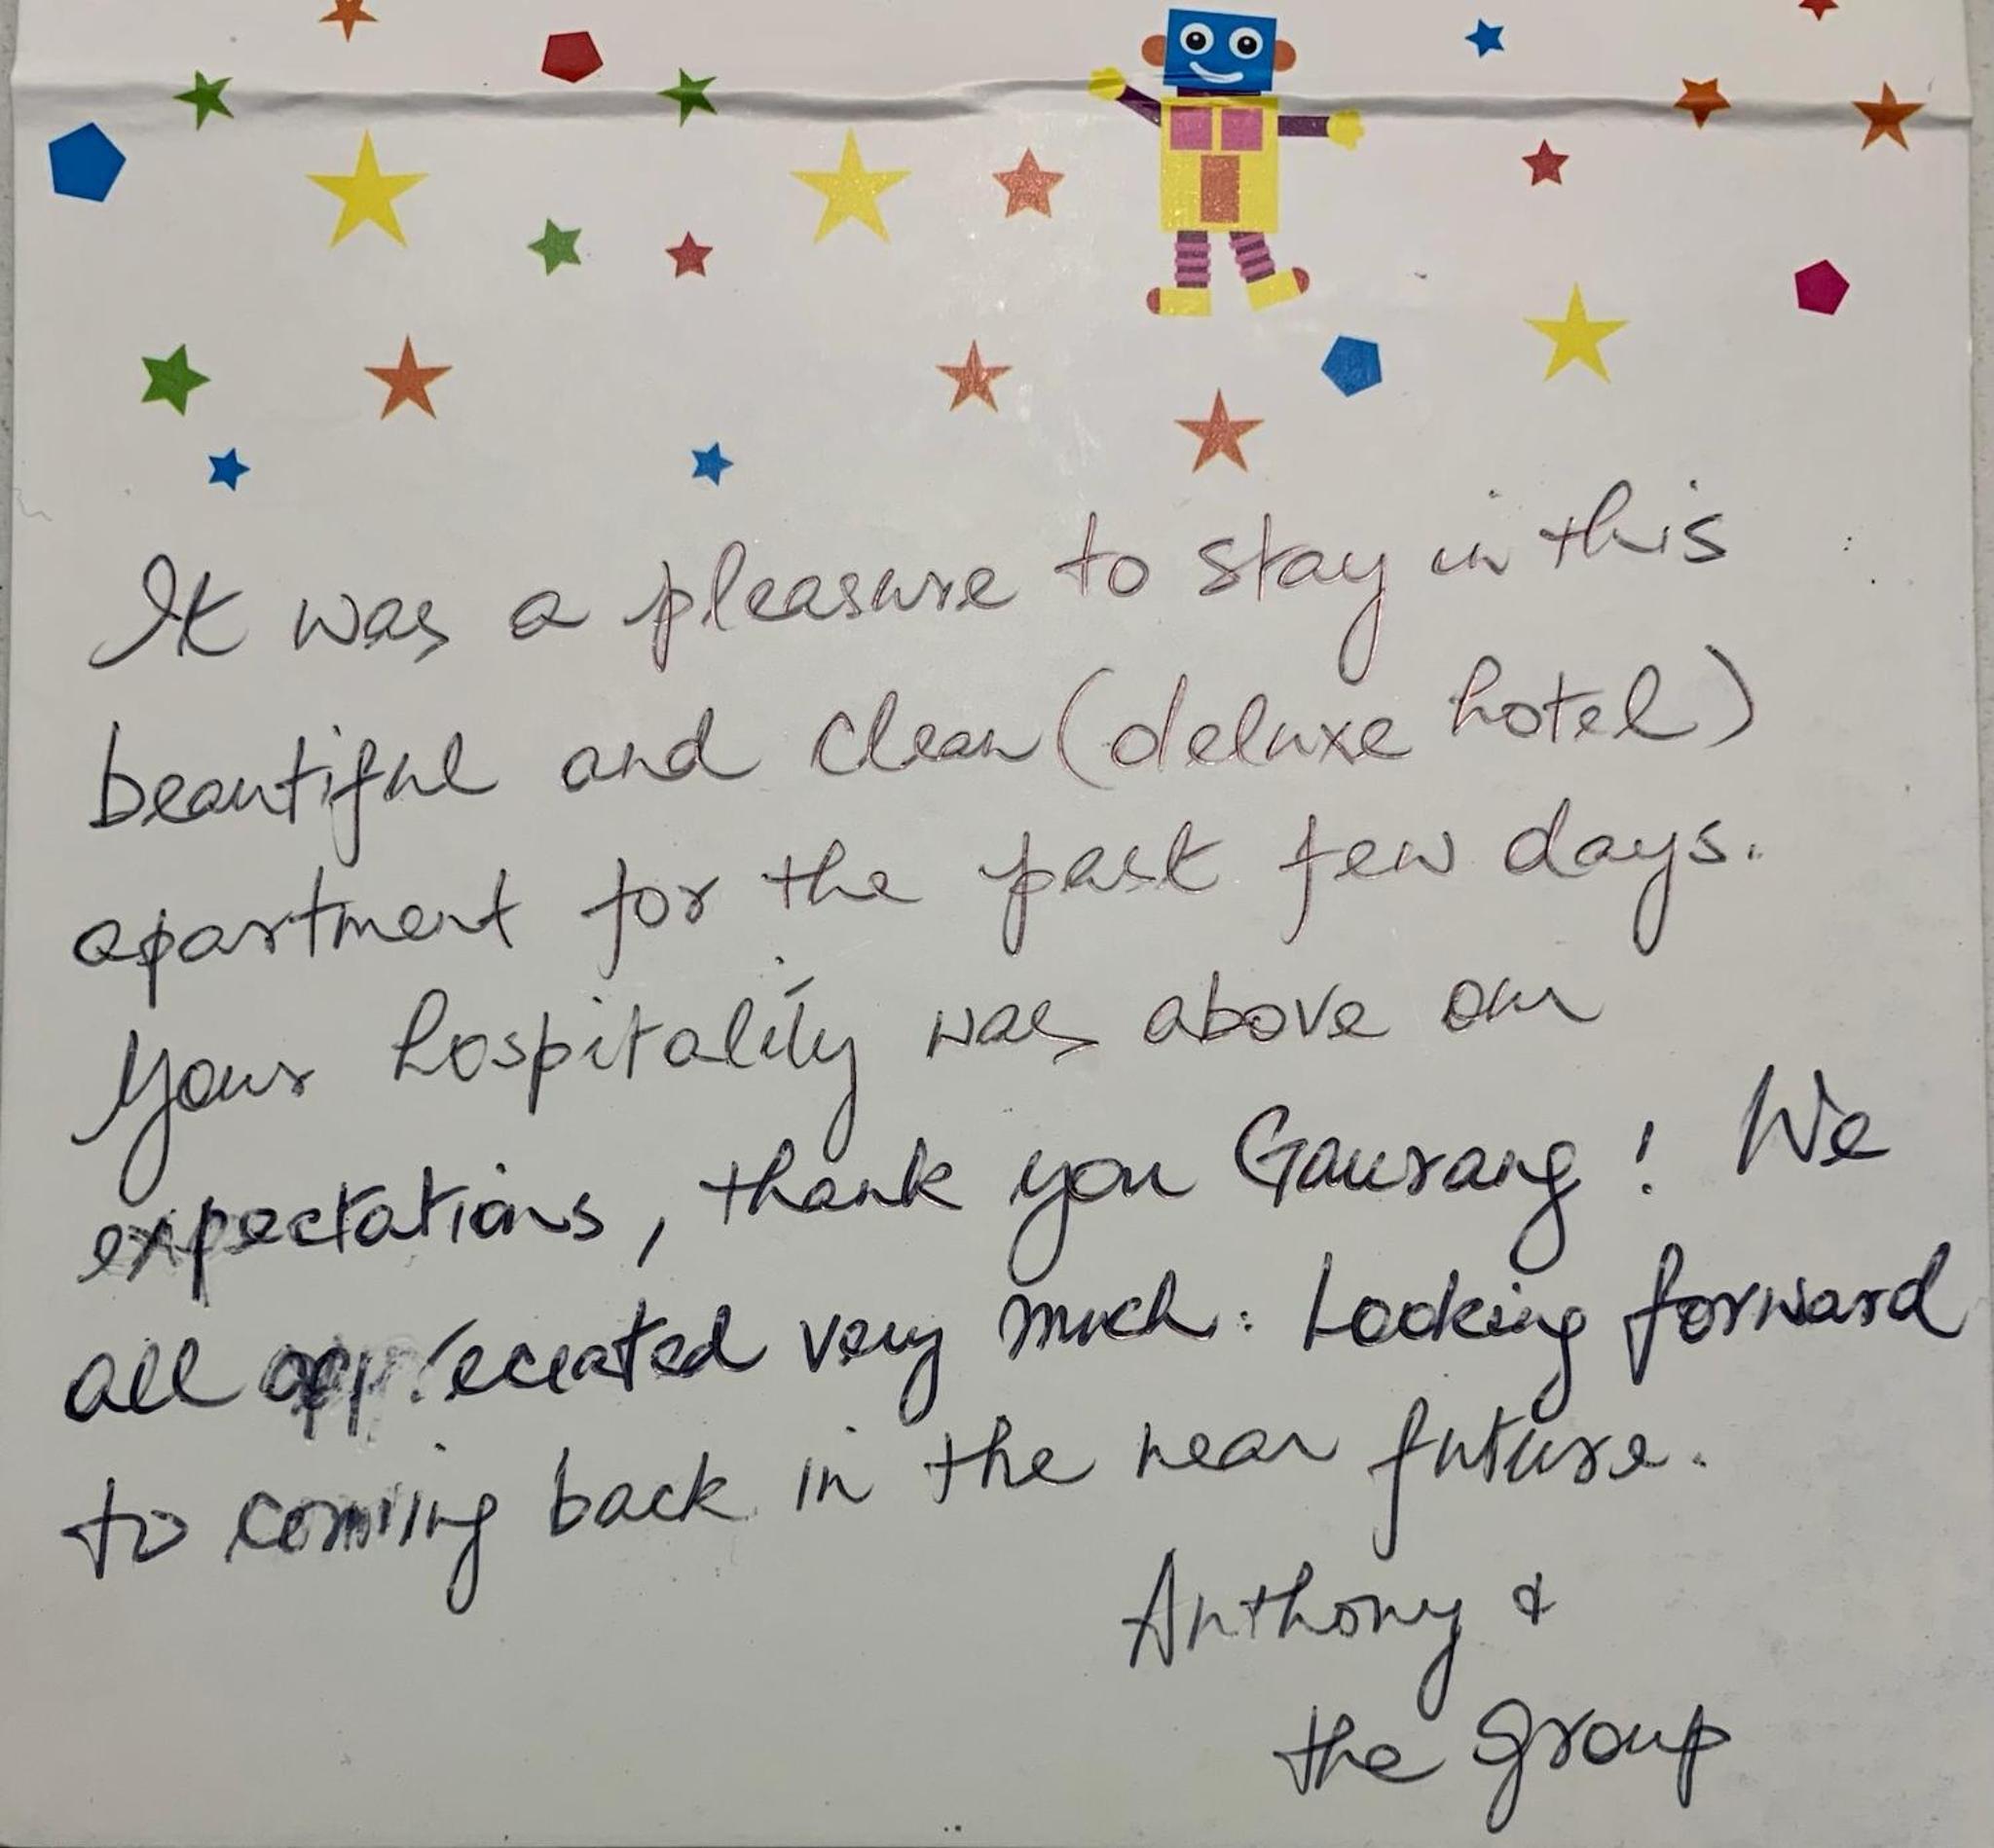 It was a pleasure to stay in this
beautiful and clean (deluxe hotel)
apartment for the past few days.
Your hospitality was above our
expectations, thank you Gaurang! We
all appreciated very much. Looking forward
to coming back in the near future.
Anthony &
the group